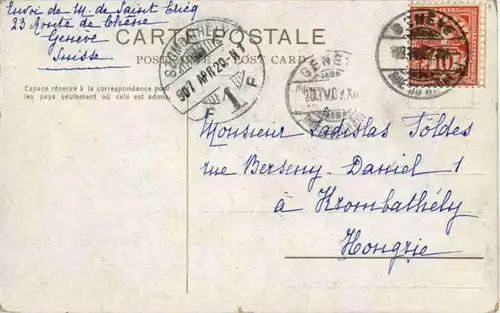 Envoi de M. de Saint Ericq
23 Route de Chêne
Genève
Suisse
CARTE POSTALE
POST CARD
Espace réservé à la correspondance pour
les pays seulement où cela est admis
Adresse
SZOMBATHELY
907 APR 20 N 7
F 1 F
GENÈVE
10
Monsieur Ladislas Földes
rue Berseny-Daniel 1
à Krombathély
Hongrie